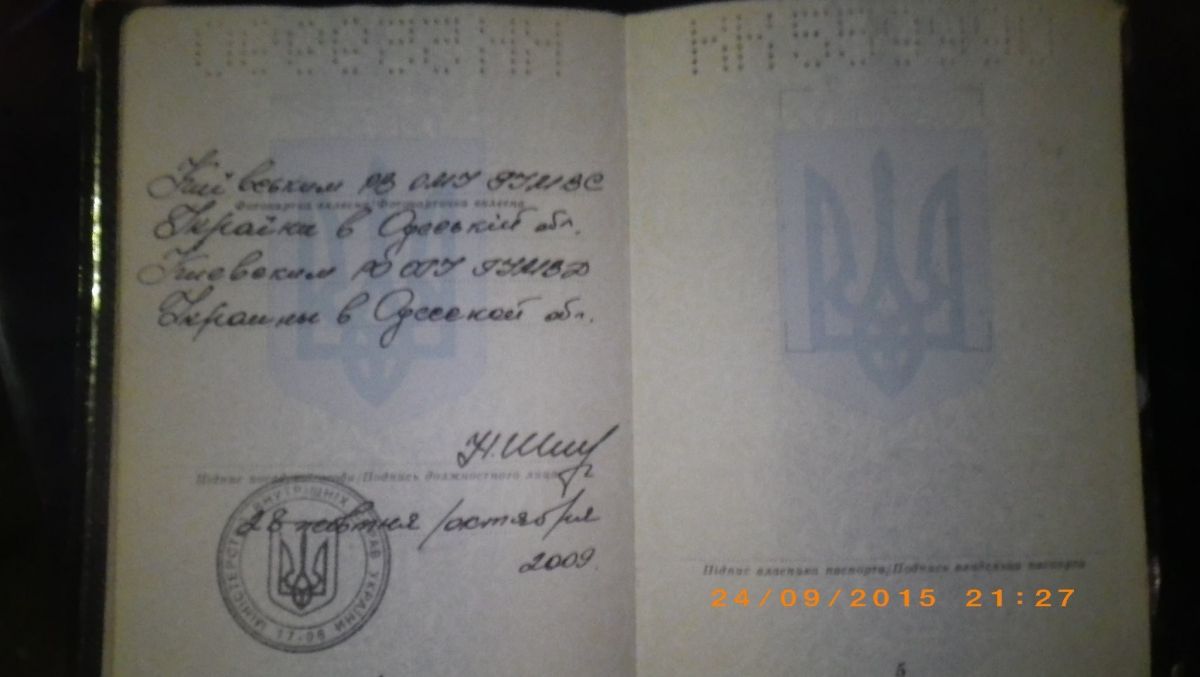 Київським РВ ОМУ ГУМВС
Фотокартка вклеєна/Фотокарточка вклеена
України в Одеській обл.
Киевским РО ОГУ ГУМВД
Украины в Одесской обл.
Підпис посадової особи/Подпись должностного лица
МІНІСТЕРСТВО ВНУТРІШНІХ СПРАВ УКРАЇНИ
28 жовтня/октября
2009.
17-08
КМ
Підпис власника паспорта/Подпись владельца паспорта
24/09/2015 21:27
5